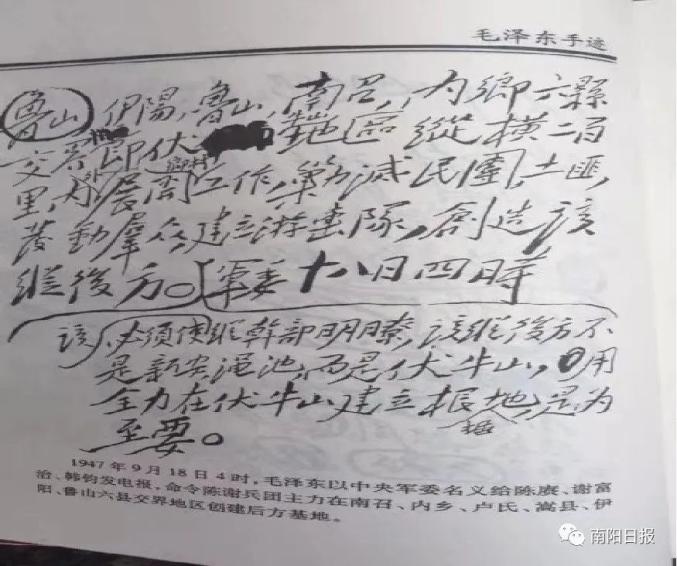 毛泽东手迹
魯山,伊陽,魯山,南召,内鄉六縣
交界即伏 地區縱橫二百
里内展開工作,剿滅民團,土匪,
發動羣众,建立游击隊,創造该
縱後方。軍委 十八日四時
该 必须使縱幹部明瞭,该縱後方不
是新安渑池,而是伏牛山,用
全力在伏牛山建立根据地,是为
至要。
1947年9月18日4时,毛泽东以中央军委名义给陈赓、谢富
治、韩钧发电报,命令陈谢兵团主力在南召、内乡、卢氏、嵩县、伊
阳、鲁山六县交界地区创建后方基地。
南阳日报